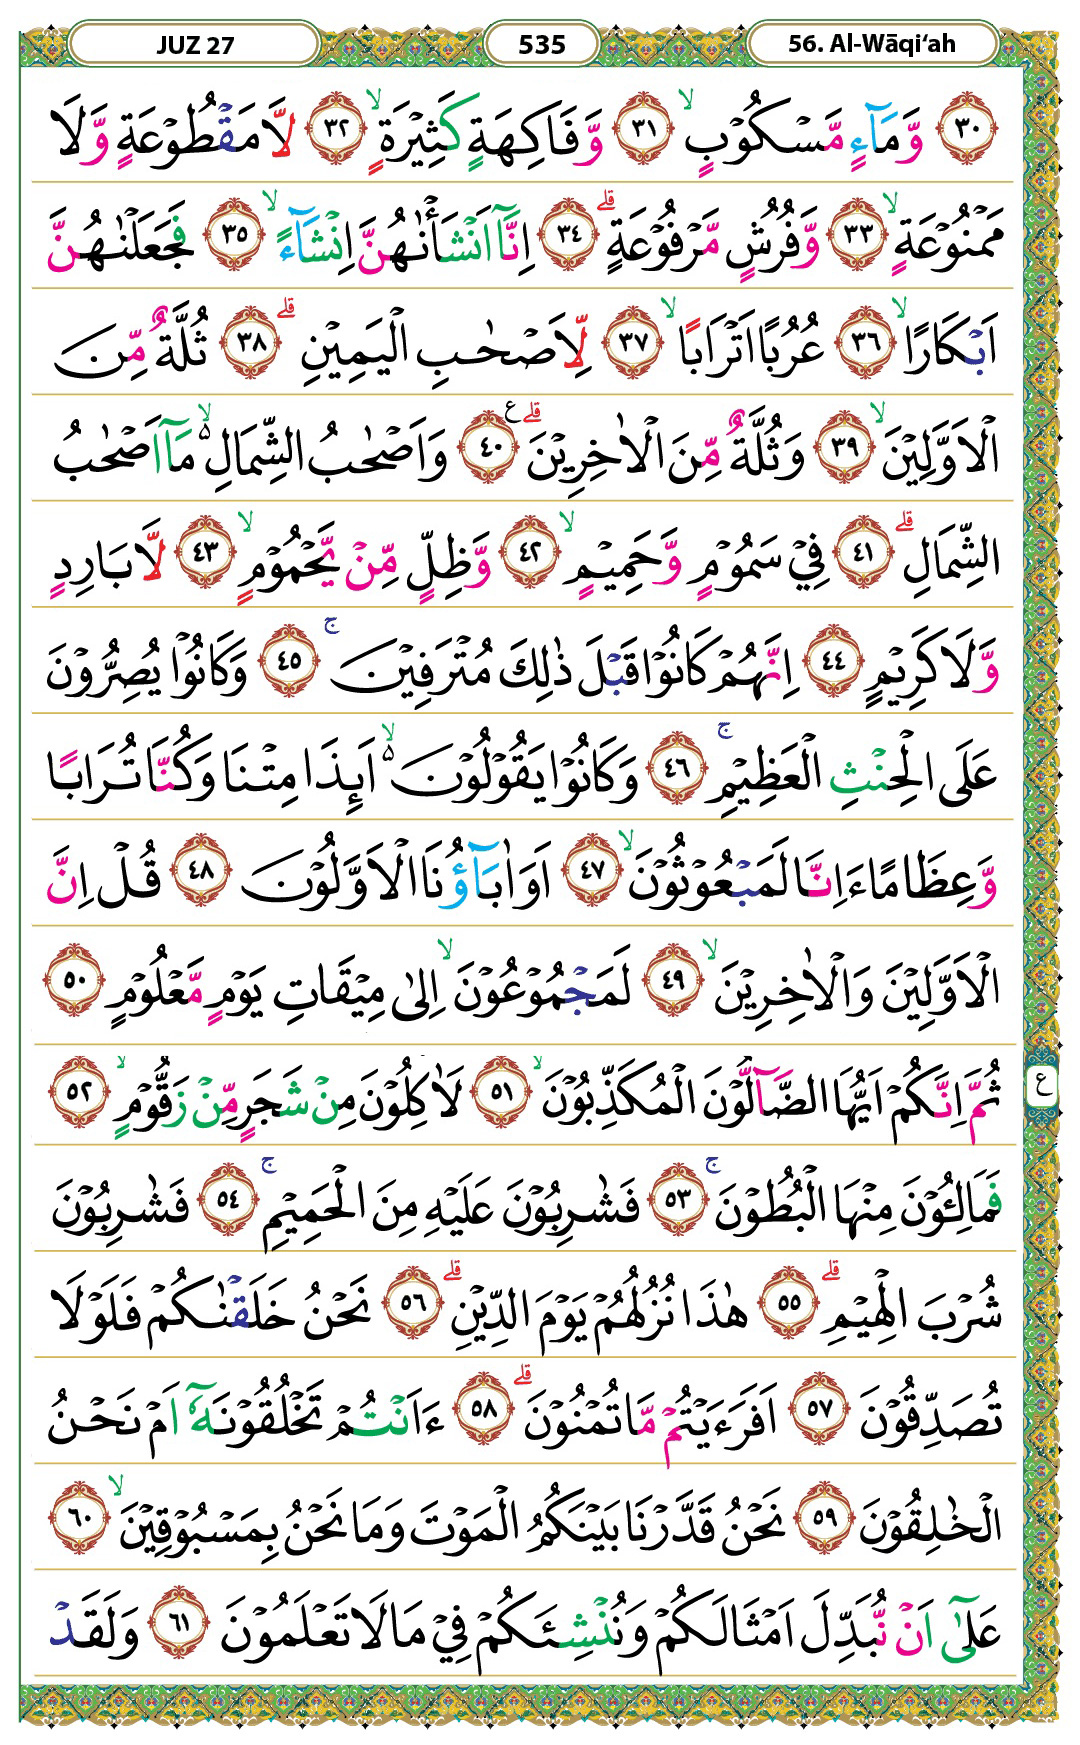 JUZ 27 535 56. Al-Wāqi‘ah
٣٠ وَّمَاۤءٍ مَّسْكُوْبٍۙ ٣١ وَّفَاكِهَةٍ كَثِيْرَةٍۙ ٣٢ لَّا مَقْطُوْعَةٍ وَّلَا
مَمْنُوْعَةٍۙ ٣٣ وَّفُرُشٍ مَّرْفُوْعَةٍۗ ٣٤ اِنَّآ اَنْشَأْنٰهُنَّ اِنْشَاۤءًۙ ٣٥ فَجَعَلْنٰهُنَّ
اَبْكَارًاۙ ٣٦ عُرُبًا اَتْرَابًاۙ ٣٧ لِّاَصْحٰبِ الْيَمِيْنِۗ ٣٨ ثُلَّةٌ مِّنَ
الْاَوَّلِيْنَۙ ٣٩ وَثُلَّةٌ مِّنَ الْاٰخِرِيْنَۗ ࣖ ٤٠ وَاَصْحٰبُ الشِّمَالِ ەۙ مَآ اَصْحٰبُ
الشِّمَالِۗ ٤١ فِيْ سَمُوْمٍ وَّحَمِيْمٍۙ ٤٢ وَّظِلٍّ مِّنْ يَّحْمُوْمٍۙ ٤٣ لَّا بَارِدٍ
وَّلَا كَرِيْمٍ ٤٤ اِنَّهُمْ كَانُوْا قَبْلَ ذٰلِكَ مُتْرَفِيْنَۚ ٤٥ وَكَانُوْا يُصِرُّوْنَ
عَلَى الْحِنْثِ الْعَظِيْمِۚ ٤٦ وَكَانُوْا يَقُوْلُوْنَ ەۙ اَىِٕذَا مِتْنَا وَكُنَّا تُرَابًا
وَّعِظَامًا ءَاِنَّا لَمَبْعُوْثُوْنَۙ ٤٧ اَوَاٰبَاۤؤُنَا الْاَوَّلُوْنَ ٤٨ قُلْ اِنَّ
الْاَوَّلِيْنَ وَالْاٰخِرِيْنَۙ ٤٩ لَمَجْمُوْعُوْنَۙ اِلٰى مِيْقَاتِ يَوْمٍ مَّعْلُوْمٍ ٥٠
ثُمَّ اِنَّكُمْ اَيُّهَا الضَّاۤلُّوْنَ الْمُكَذِّبُوْنَۙ ٥١ لَاٰكِلُوْنَ مِنْ شَجَرٍ مِّنْ زَقُّوْمٍۙ ٥٢
ع
فَمَالِـُٔوْنَ مِنْهَا الْبُطُوْنَۚ ٥٣ فَشٰرِبُوْنَ عَلَيْهِ مِنَ الْحَمِيْمِۚ ٥٤ فَشٰرِبُوْنَ
شُرْبَ الْهِيْمِۗ ٥٥ هٰذَا نُزُلُهُمْ يَوْمَ الدِّيْنِۗ ٥٦ نَحْنُ خَلَقْنٰكُمْ فَلَوْلَا
تُصَدِّقُوْنَ ٥٧ اَفَرَءَيْتُمْ مَّا تُمْنُوْنَۗ ٥٨ ءَاَنْتُمْ تَخْلُقُوْنَهٗٓ اَمْ نَحْنُ
الْخٰلِقُوْنَ ٥٩ نَحْنُ قَدَّرْنَا بَيْنَكُمُ الْمَوْتَ وَمَا نَحْنُ بِمَسْبُوْقِيْنَۙ ٦٠
عَلٰٓى اَنْ نُّبَدِّلَ اَمْثَالَكُمْ وَنُنْشِئَكُمْ فِيْ مَا لَا تَعْلَمُوْنَ ٦١ وَلَقَدْ